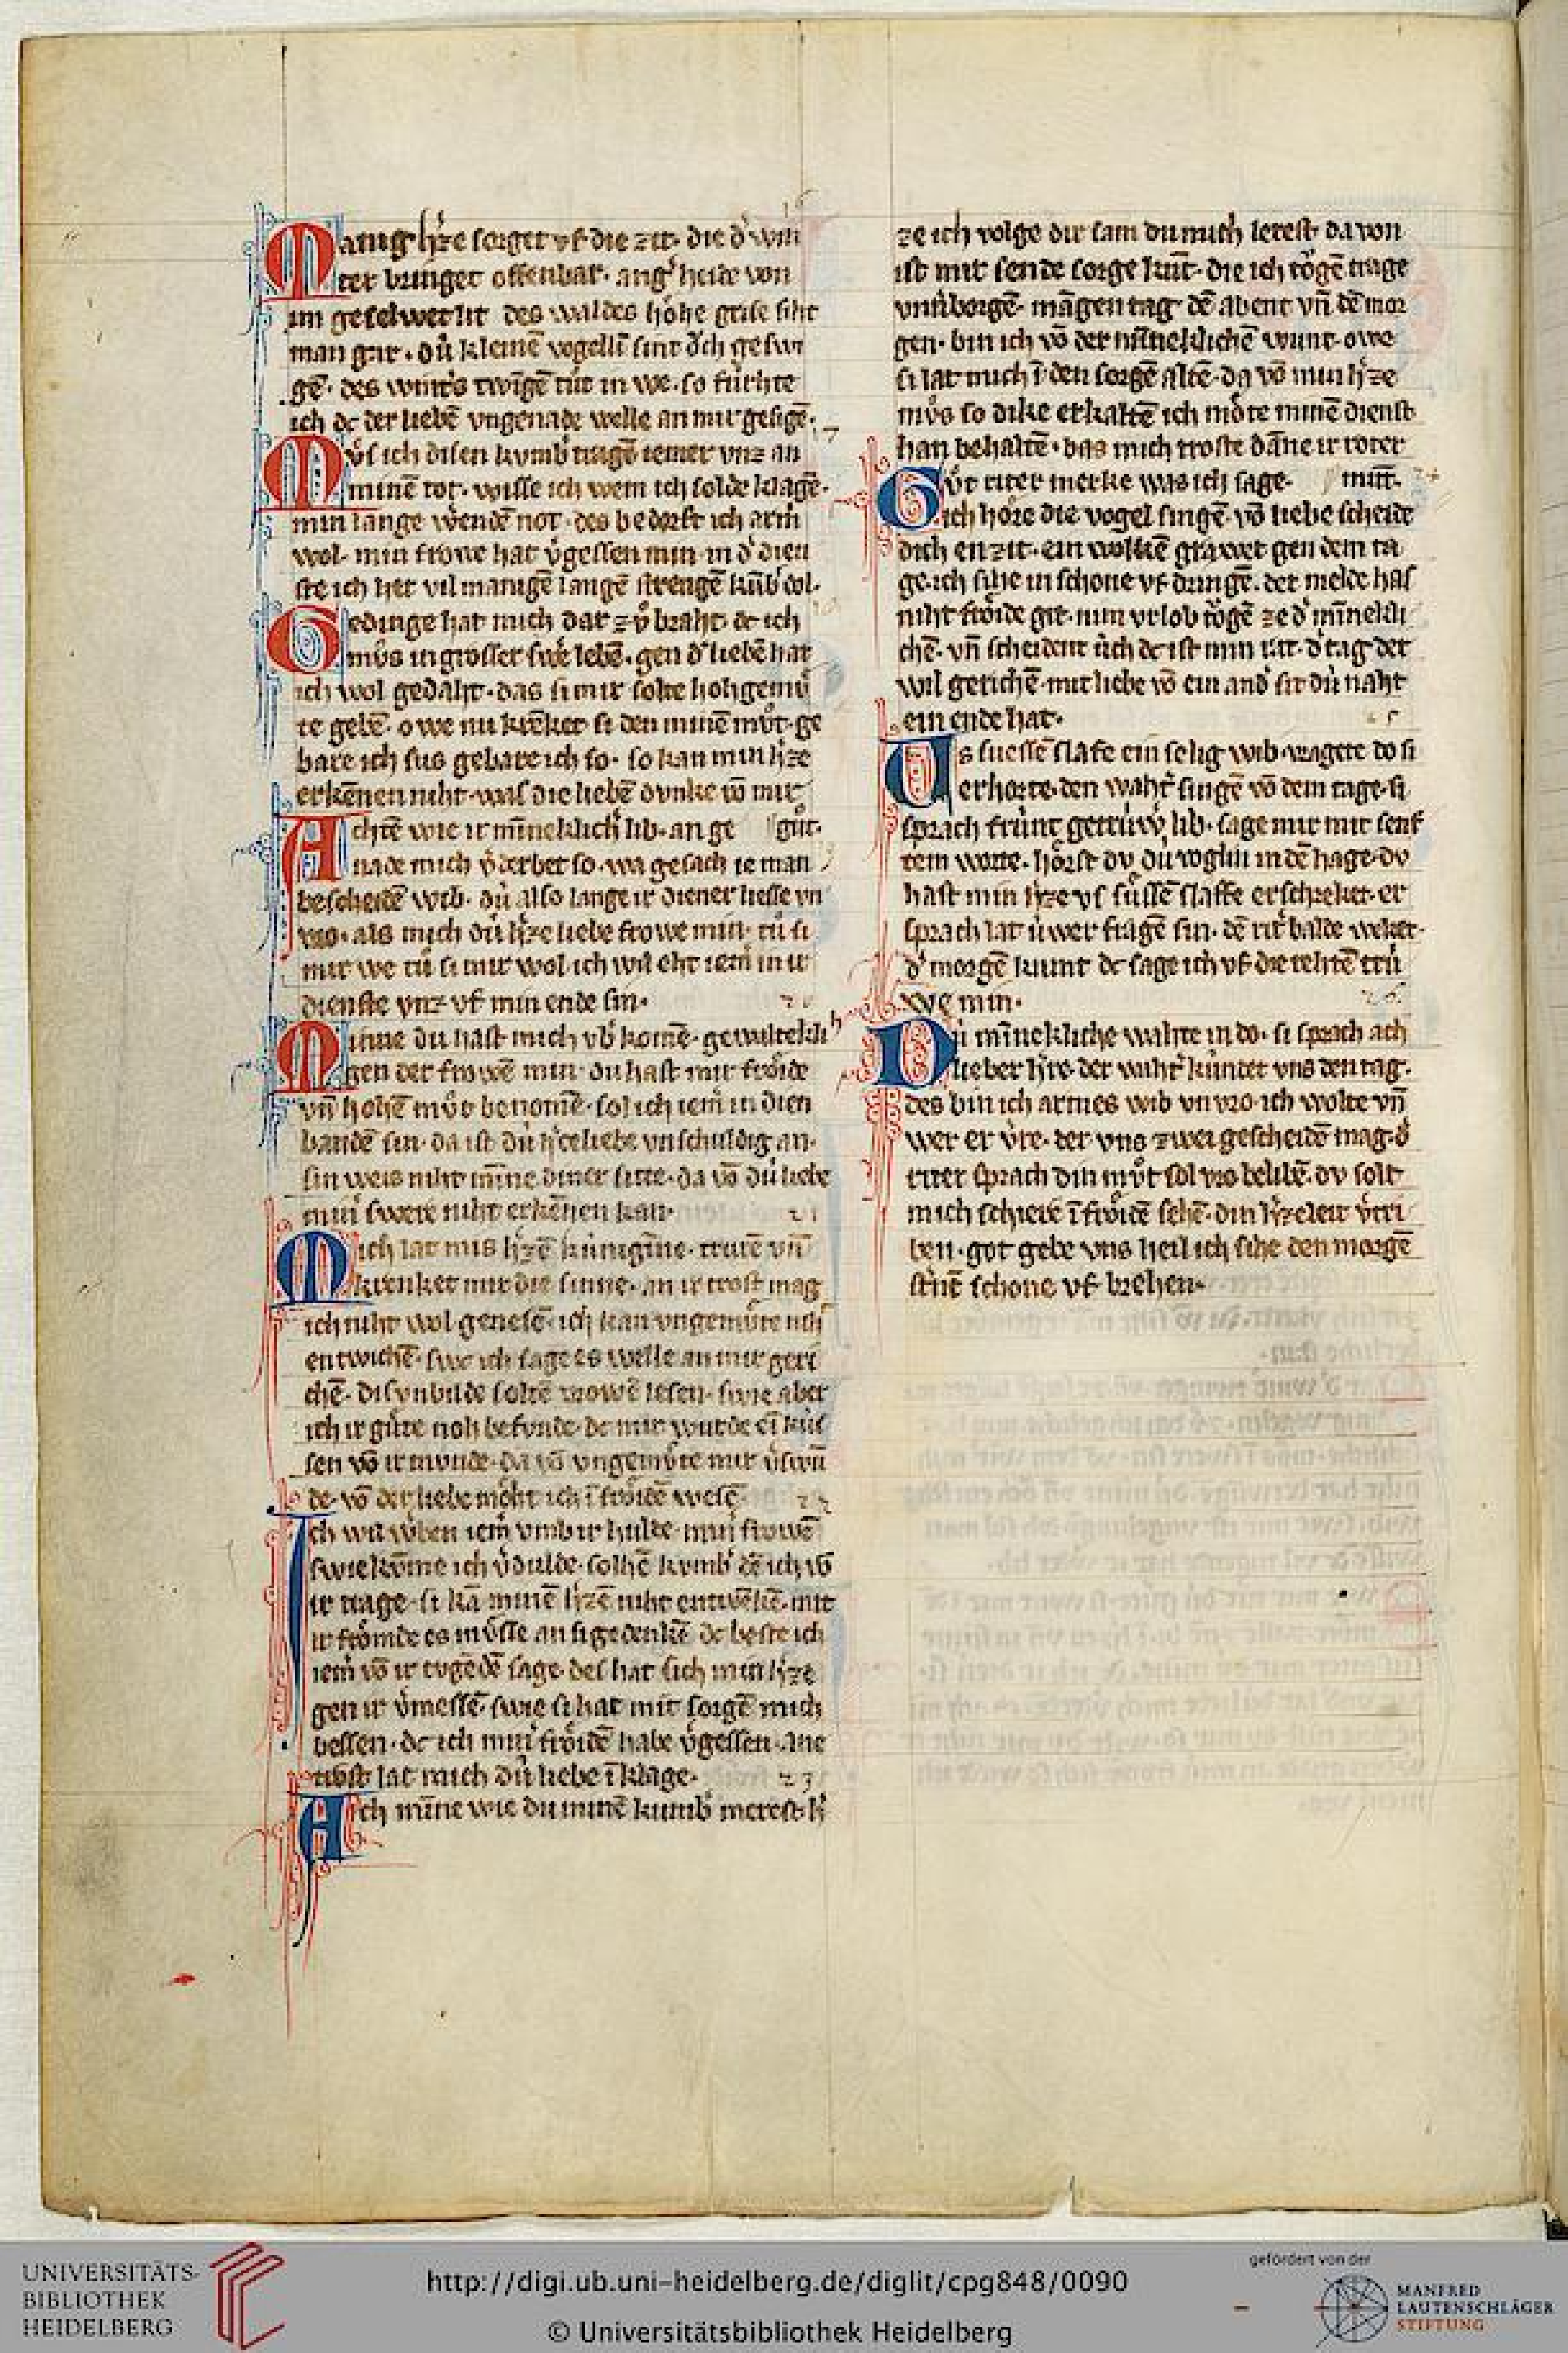 Manig hˢze sorget vf die zit· die dˢ win
ter bringet offenbar· angˢ heide von
im geselwet lit des waldes hoͤhe grise siht
man gar· dú kleinē vogellī sint oͮch geswi
gē· des wintˢs twīgē tuͦt in we· so fúrhte
ich dc der liebē vngenade welle an mir gesigē·
Mvͦs ich disen kvmbˢ tragē iemer vnz an
minē tot· wisse ich wem ich solde klagē·
min lange wˢendē not· des bedorft ich armˢ
wol· min frowe hat vˢgessen min· in dˢ dien
ste ich het vil manigē langē strengē kūbˢ dol·
Gedinge hat mich dar zvͦ braht· dc ich
mvͦs in grosser swˢe lebē· gen dˢ liebē hat
ich wol gedaht· das si mir solte hohgemuͤ
te gebē· owe nu krēket si den minē mvͦt· ge
bare ich sus gebare ich so· so kan min hˢze
erkēnen niht· was die liebē dvnke vō mir
Achtē wie ir mīneklichˢ lib· an ge guͦt·
nade mich vˢderbet so· wa gesach ie man
bescheidē wib· dú also lange ir diener liesse vn
vro· als mich dú hˢze liebe frowe min· tuͦ si
mir we tuͦ si mir wol· ich wil eht iemˢ in ir
dienste vnz vf min ende sin· 20
Minne du hast mich vbˢ komē· gewalteklich
gen der frowē min· du hast mir froͤide
vn̄ hohē mvͦt benomē· sol ich iemˢ in dien
bandē sin· da ist dú hˢceliebe vnschuldig an·
sin weis niht mīne diner sitte· da vō dú liebe
minˢ swere niht erkēnen kan· 21
Mich lat mis hˢzē kúnigīne· trurē vn̄
krenket mir die sinne· an ir trost mag
ich niht wol genesē· ich kan vngemuͤte niht
entwichē· swc ich sage es welle an mir geri
chē· dis vnbilde soltē vrowē lesen· swie aber
ich ir guͤte noh befvnde· dc mir wurde eī kús
sen vō ir mvnde· da vō vngemvͤte mir vˢswn̄
de· vō der liebe moͤht ich ī froͤidē wesē· 22
Ich wil wˢben iemˢ vmb ir hulde· minˢ frowē
swie kvme ich vˢdulde· solhē kvmbˢ dē ich vō
ir trage· si kā minē hˢzē niht entwēkē· mit
ir froͤmde es mvͤsse an si gedenkē· dc beste ich
iemˢ vō ir tvgēdē sage· des hat sich min hˢze
gen ir vˢmessē· swie si hat mit sorgē mich
besessen· dc ich minˢ froͤidē habe vˢgessen· ane
trost lat mich dú liebe ī klage· 23
Ach mīne wie du minē kumbˢ merest· hˢ
ze ich volge dir sam du mich lerest· da von
ist mir sende sorge kunt· die ich toͮgē trage
vnuˢborgē· māgen tag dē abent vn̄ dē mor
gen· bin ich vō der mīneklichē wunt· owe
si lat mich ī den sorgē altē· da vō min hˢze
mvͦs so dike erkaltē ich moͤte minē dienst
han behaltē· das mich troste dāne ir roter
Gvͦt riter merke was ich sage· mūt· 24
ich hoͤre die vogel singē· vō liebe scheide
dich en zit· ein wolkē grawet gen dem ta
ge· ich sihe in schone vf dringē· der melde has
niht froͤide git· nim vrlob toͮgē ze dˢ mīnekli
chē· vn̄ scheident úch dc ist min rat· dˢ tag der
wil gerichē· mit liebe vō ein andˢ sit dú naht
ein ende hat· 25
Vs suessē slafe ein selig wib· vragete do si
erhorte· den wahtˢ singē vō dem tage· si
sprach frúnt getrúwˢ lib· sage mir mit senf
tem worte· hoͤrst dv dú voglin in dē hage· dv
hast min hˢze vs suͤssē slaffe erschreket· er
sprach lat úwer fragē sin· dē ritˢ balde weket·
dˢ morgē kunt dc sage ich vf die rehtē trú
we min· 26
Dú mīnekliche wahte in do· si sprach ach
lieber hˢre· der wahtˢ kúndet vns den tag·
des bin ich armes wib vnvro· ich wolte vn̄
wer er vˢre· der vns zwei gescheidē mag· dˢ
riter sprach din mvͦt sol vro belibē· dv solt
mich schiere ī froͤidē sehē· din hˢzeleit vˢtri
ben· got gebe vns heil ich sihe den morgē
stˢnē schone vf brehen·
UNIVERSITÄTS-
BIBLIOTHEK
HEIDELBERG
http://digi.ub.uni-heidelberg.de/diglit/cpg848/0090
© Universitätsbibliothek Heidelberg
gefördert von der
MANFRED
LAUTENSCHLÄGER
STIFTUNG